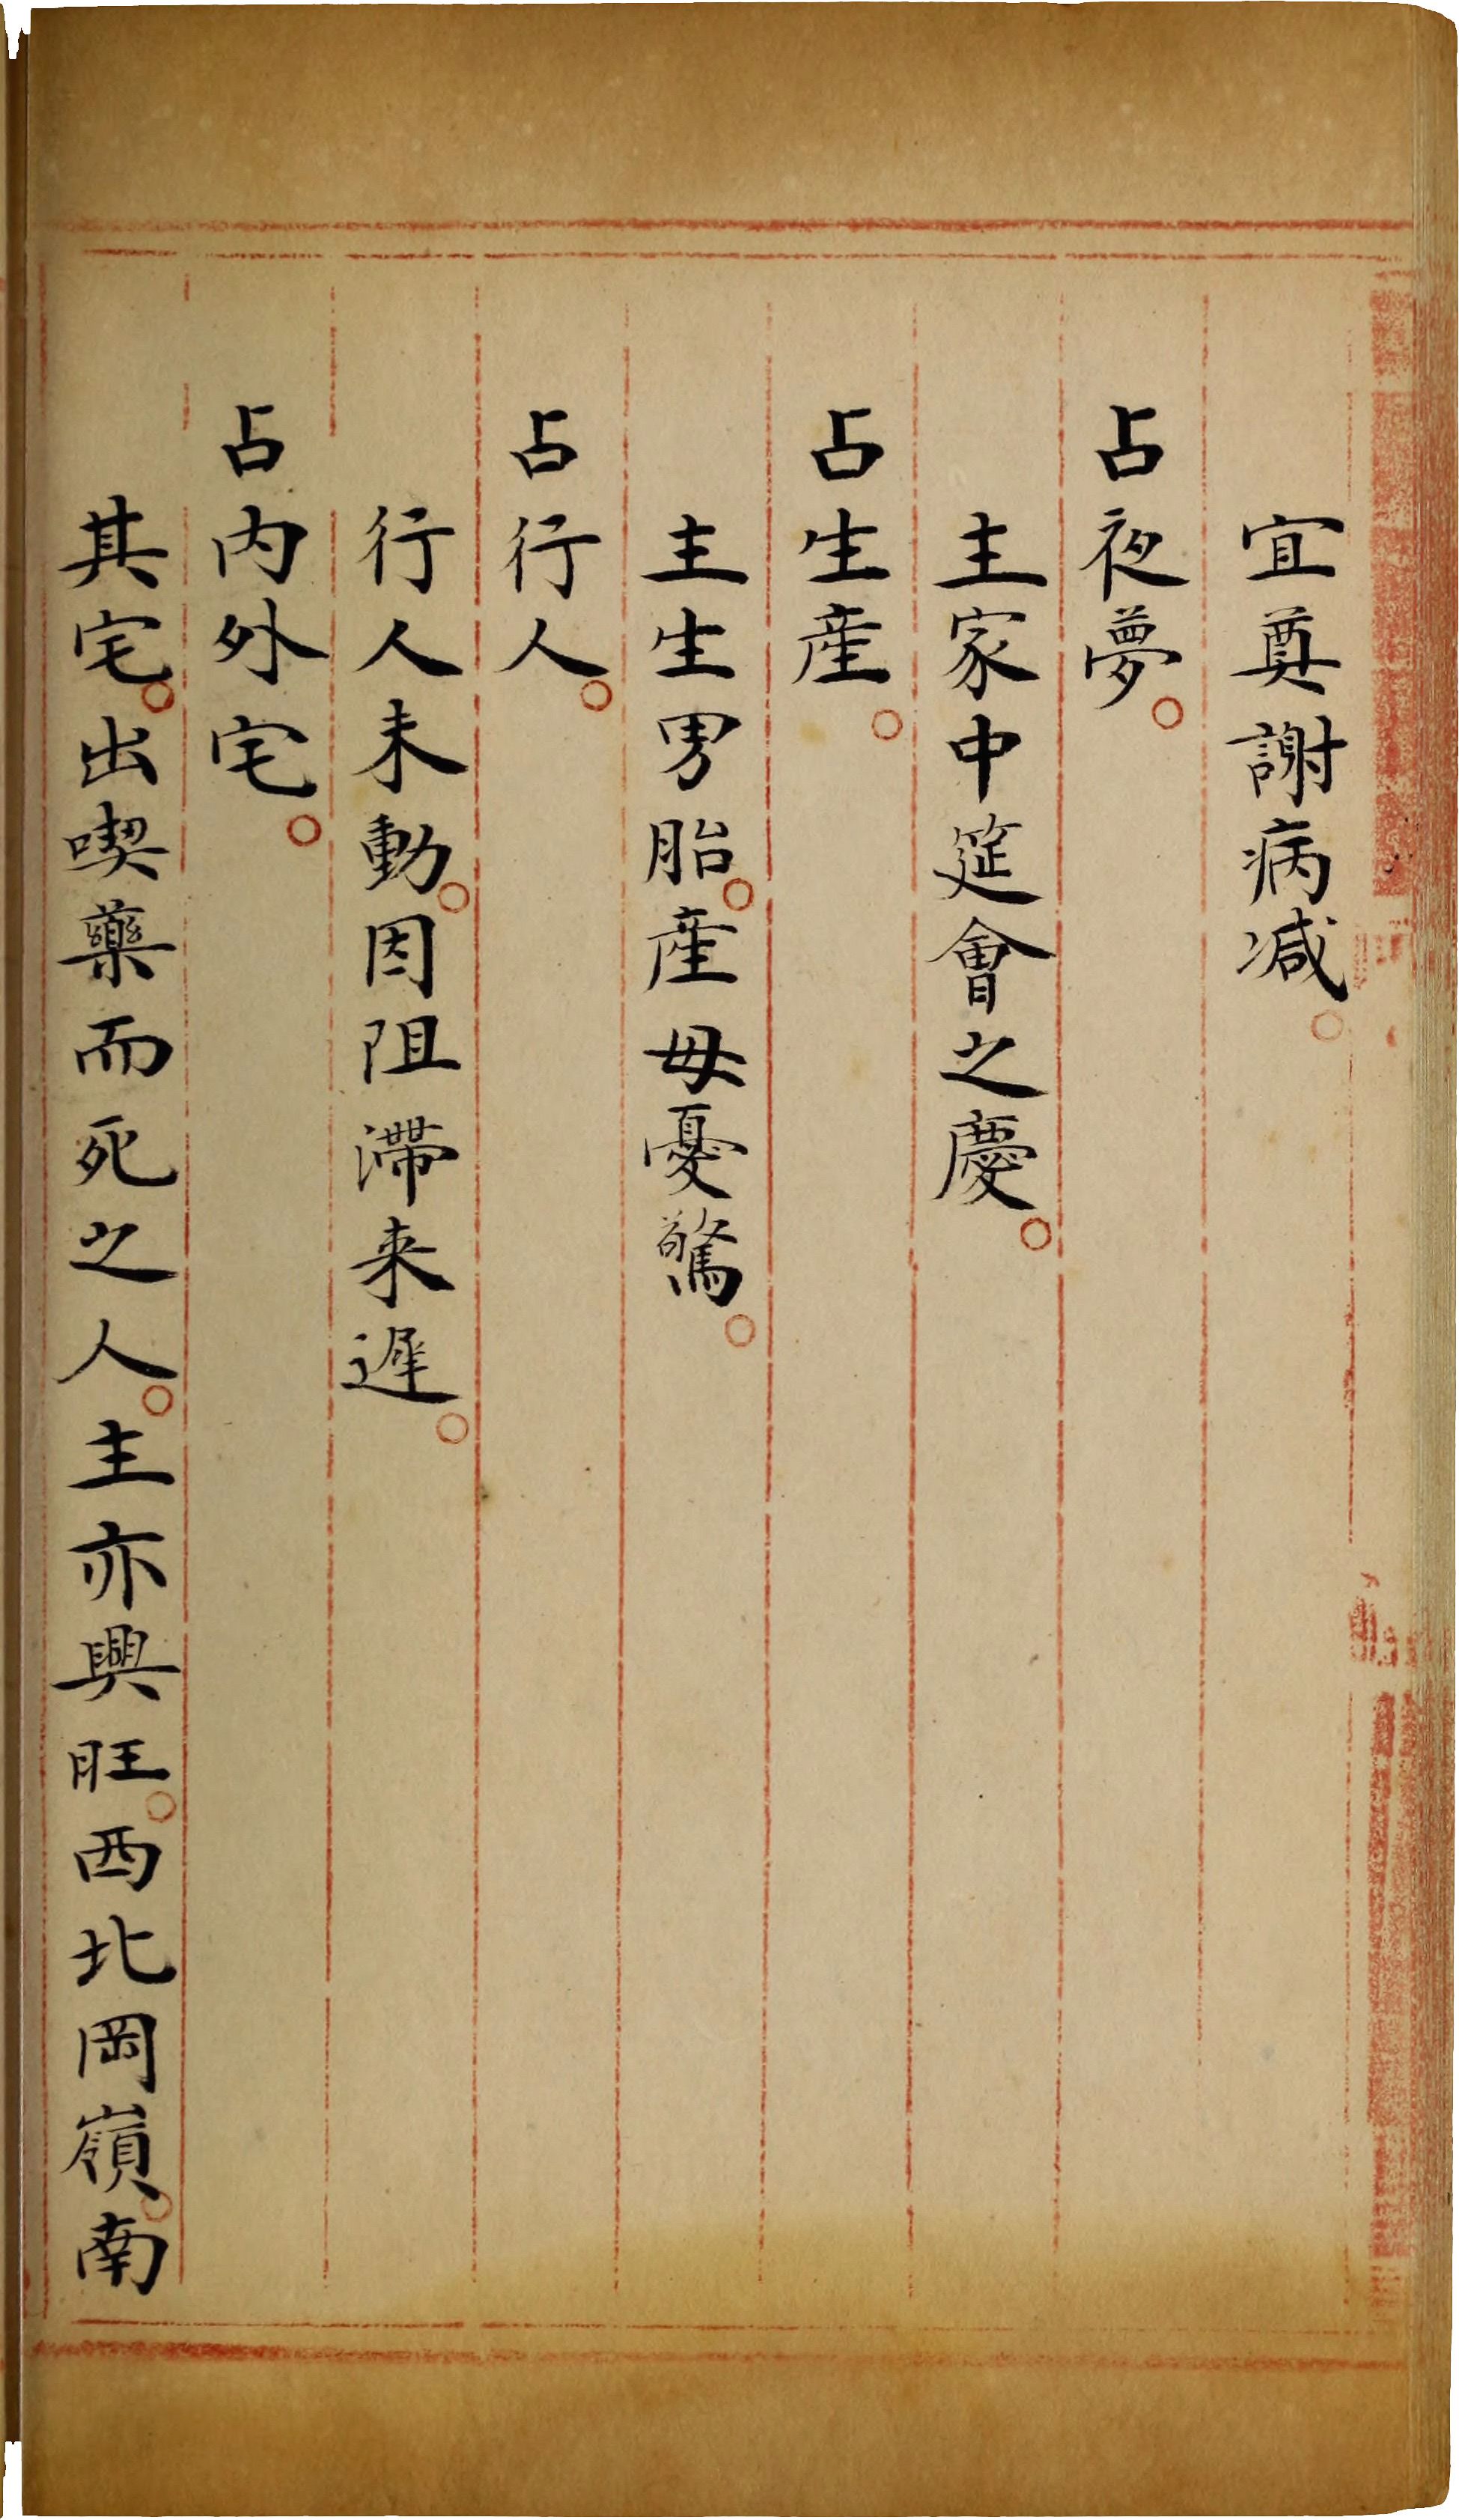 宜奠謝病减。
占夜夢。
主家中筵會之慶。
占生產。
主生男胎。產母憂驚。
占行人。
行人未動。因阻滯来遲。
占内外宅。
其宅。出喫藥而死之人。主亦興旺。西北岡嶺。南